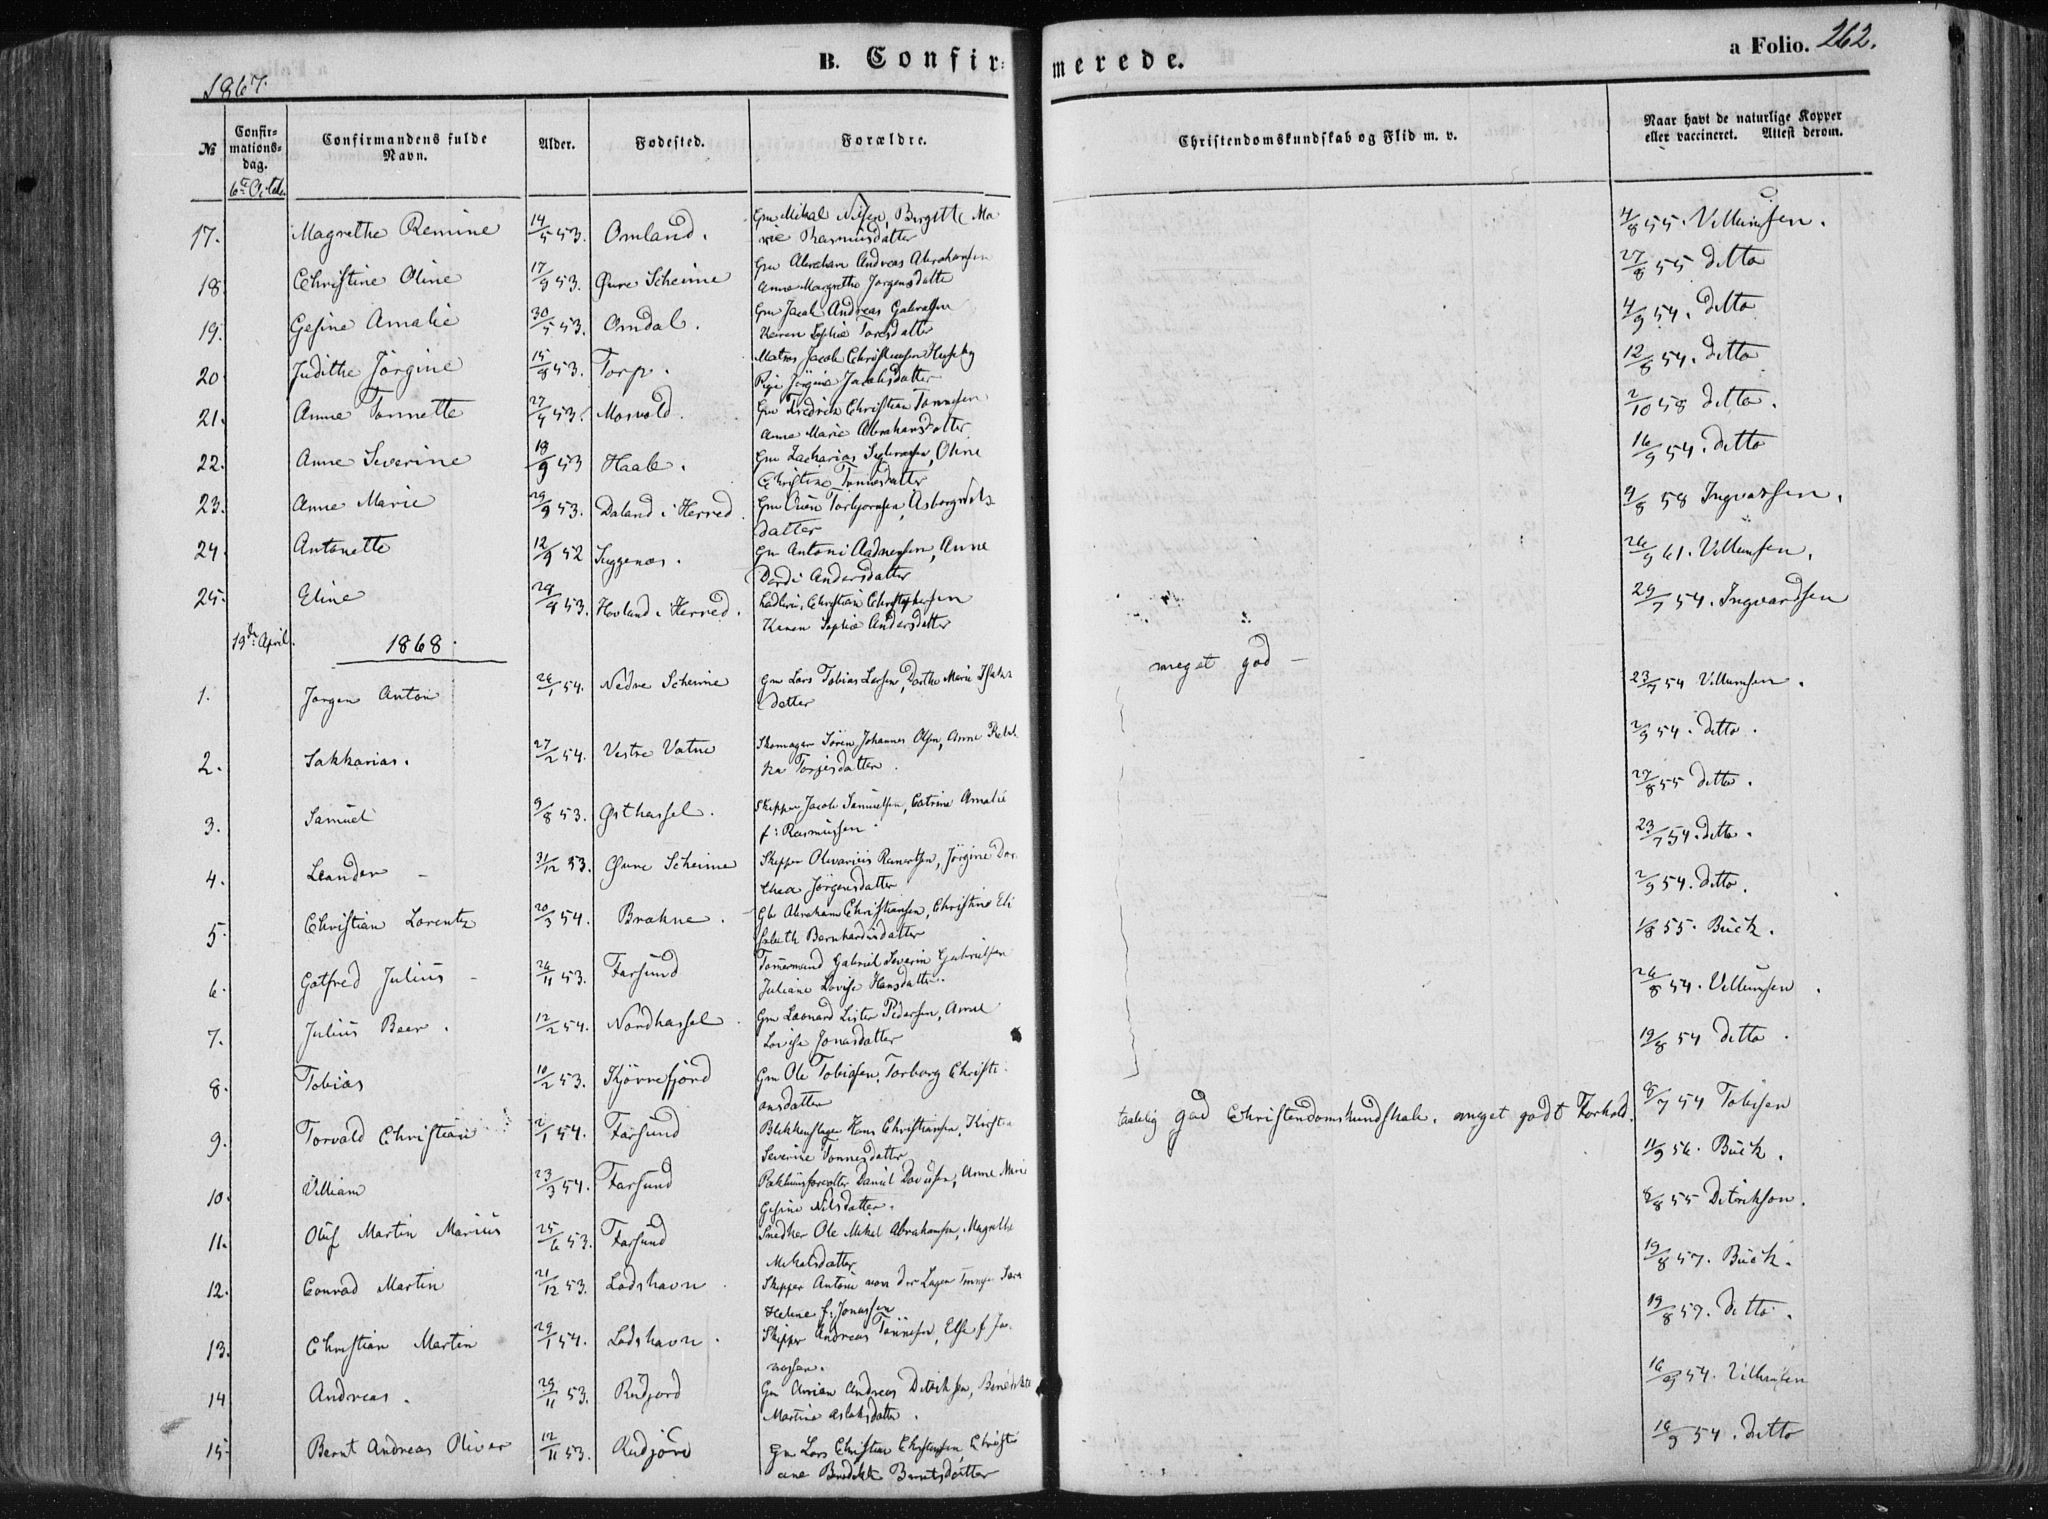 B. Confir=
merede.
a Folio. 262.
1867.
№
Confir-
mations-
dag.
Confirmandens fulde
Navn.
Alder.
Fødested.
Forældre.
Christendomskundskab og Flid m. v.
Naar havt de naturlige Kopper
eller vaccineret. Attest derom.
6te October
17. Magrethe Remine 14/5 53. Omland. Gm Mikal Nilsen, Birgitte Ma 4/8 55. Villumsen.
rie Rasmusdatter
18. Christine Oline 17/9 53. Øvre Scheime Gm Abraham Andreas Abrahamsen 27/8 55 ditto
Anne Margrethe Jørgensdatte
19. Gesine Amalie 30/5 53. Omdal. Gm Jacob Andreas Gabrielsen 4/9 54. ditto
Karen Sophie Toresdatter
20 Judithe Jörgine 15/8 53. Torp. Matros Jacob Christensen Huseby 12/8 54. ditto
Pige Jörgine Jacobsdatter
21. Anne Tonnette 27/4 53. Mosvold. Gm Fredrik Christian Tønnesen 2/10 58 ditto.
Anne Marie Abrahamsdatter
22. Anne Severine 18/9 53 Haale. Gm Zacharias, Oline 16/9 54. ditto
Christine Tønnesdatter
23. Anne Marie 29/9 53. Daland i Herred. Gm Ouen Torbjørnsen, Asborg Nils 9/8 58 Ingvarsen.
datter
24. Antonette 12/9 52 Seggenæs. Gm Antoni Aadnesen, Anne 26/9 61. Villumsen.
Dordi Andersdatter
25. Eline 28/4 53. Hovland i Herred. Christian Christophersen 29/7 54. Ingvardsen
Karen Sophie Andersdatter
19de April. 1868.
1. Jørgen Anton 26/1 54. Nedre Scheime Gm Lars Tobias Larsen, Dorthe Marie Isaks meget god — 23/7 54 Villumsen.
datter
2. Sakkarias. 27/2 54. Vestre Vatne Skomager Søren Johannes Olsen, Anne Rebek 2/9 54. ditto.
ka Torjesdatter.
3. Samuel 9/8 53. Østhassel. Skipper Jacob Samuelsen, Catrine Amalie 27/8 55 ditto.
f: Rasmussen.
4. Leander — 31/12 53. Øvre Scheime Skipper Olivarius Reinertsen, Jörgine Dor 23/7 54. ditto.
thea Jörgensdatter
5. Christian Lorentz 20/3 54. Brekne. Gm Abraham Christiansen, Christine Eli 2/9 54. ditto.
sabeth Bernhardusdatter
6. Gotfred Julius — 26/11 53. Farsund Tømmermand Gabriel Severin Gabrielsen 1/8 55. Buck.
Juliane Lovise Hansdatter.
7. Julius Beer. 12/2 54. Nordhassel Gm Leonard Lister Pedersen, Anne 26/8 54. Villumsen.
Lovise Jonasdatter
8. Tobias 10/2 53. Kjörrefjord Gm Ole Tobiasen, Torborg Christi 19/8 54 ditto.
ansdatter
9. Torvald Christian 2/1 54. Farsund Blikkenslager Hans Christiansen, Kirsten taalelig god Christendomskundskab. meget godt Forhold. 8/7 54 Tobisen
Severine Tønnesdatter
10. Villiam 23/3 54. Farsund Pakhuusforvalter Daniel Davidsen, Anne Marie 11/9 56. Buck.
Gesine Nilsdatter.
11. Oluf Martin Marius 25/6 53. Farsund Snedker Ole Mikal Abrahamsen, Magrethe 8/8 55 Ditrikson.
Mikalsdatter
12. Conrad Martin 21/12 53. Lodshavn. Skipper Antoni von der Lagen Sara 19/8 57. Buck.
Helene f: Jonassen
13. Christian Martin 29/1 54. Lodshavn. Skipper Andreas Tønnesen, Else f. Jo- 19/8 57. ditto.
nassen.
14 Andreas. 29/11 53. Rudjord Gm Arrian Andreas Ditriksen, Benedikte 16/9 54. Villumsen
Martine Aslaksdatter.
15 Bernt Andreas Oliver 12/11 53. Rudjörd Gm Lars Christian Christensen Christi 16/9 54. ditto
ane Benedikte Berntsdatter